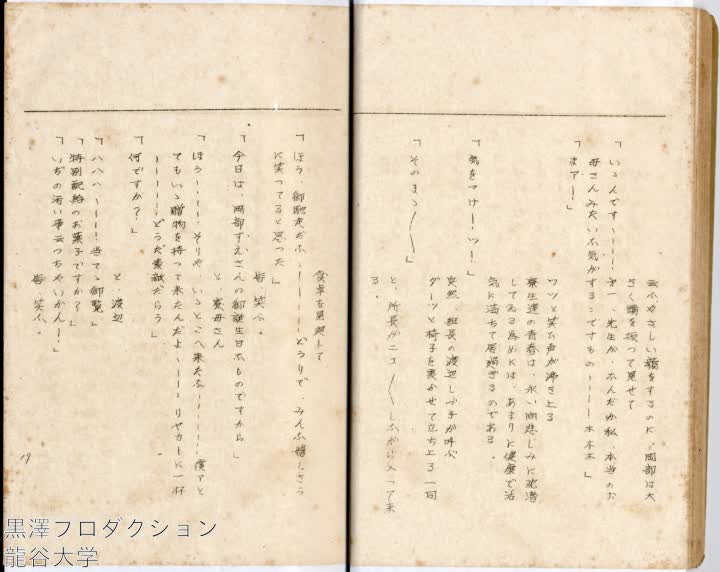 云ふやさしい顔をするのに、岡部は大
きく頭を振って見せて
「いゝんです、――――第一、先生が、なんだか私、本当のお
母さんみたいな気がするこですもの――――ホホホ」
「まアー！」
ワッと笑ひ声が沸き上る
寮生達の青春は、永い間悲しみに沈潜
してゐる為めには、あまりに健康で活
気に満ちて居過ぎるのである。
「気をつけーッ！」
突然、組長の渡辺しづ子が叫ぶ
ダーッと椅子を轟かせて立ち上る一同
「そのまゝ〳〵」
と、所長がニコ〳〵しながら入って来
る。
食卓を見廻して
「ほう、御馳走だな、――――どうりで、みんな嬉しさう
に笑ってると思った」
皆、笑ふ。
「今日は、岡部すえさんの御誕生日なものですから」
と、寮母さん
「ほう――――、そりや、いゝとこへ来たな――――僕アと
てもいゝ贈物を持って来たんだよ、――――リヤカーに一杯
――――どうだ素敵だらう」
「何ですか？」
と、渡辺
「ハハハ――――当てゝ御覧」
「特別配給のお菓子ですか？」
「いぢの汚い事云っちゃいかん！」
皆、笑ふ。
19
黒澤プロダクション
龍谷大学